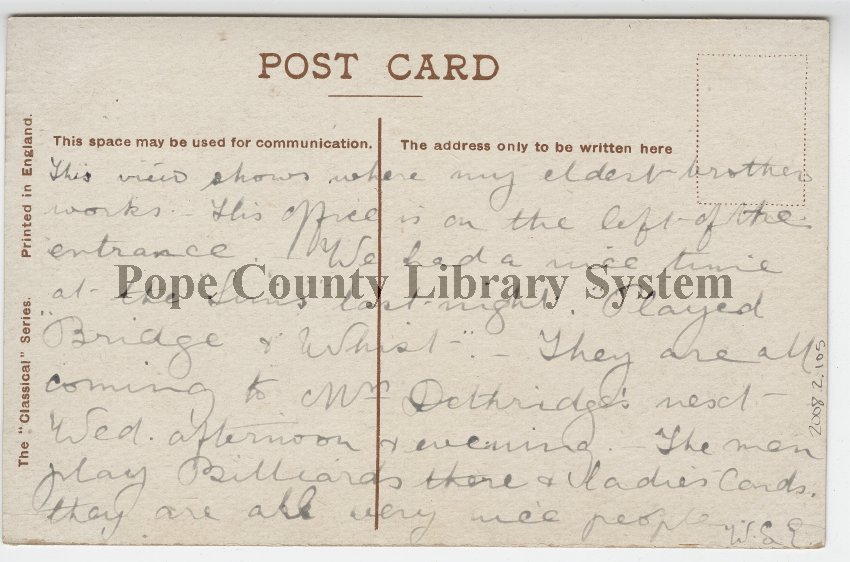 POST CARD
This space may be used for communication.
The address only to be written here
This view shows where my eldest brother
works. – His office is on the left of the
entrance. We had a nice time
at the last night. Played
"Bridge & Whist". – They are all
coming to Mrs Dethridge's next
Wed. afternoon & evening. – The men
play Billiards there & ladies Cards.
they are all very nice people
W. & E.
Pope County Library System
The "Classical" Series. Printed in England.
2008 2.105